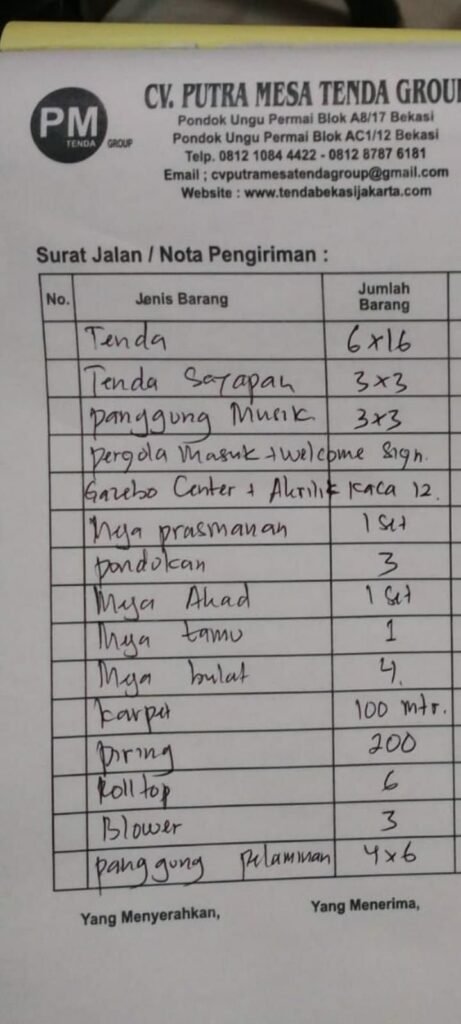 PM
TENDA GROUP
CV. PUTRA MESA TENDA GROUP
Pondok Ungu Permai Blok A8/17 Bekasi
Pondok Ungu Permai Blok AC1/12 Bekasi
Telp. 0812 1084 4422 - 0812 8787 6181
Email ; cvputramesatendagroup@gmail.com
Website : www.tendabekasijakarta.com
Surat Jalan / Nota Pengiriman :
No. Jenis Barang Jumlah Barang
Tenda 6x16
Tenda Sarapan 3x3
panggung Musik 3x3
pergola Masuk + welcome Sign.
Gazebo Center + Akrilik kaca 12.
Meja prasmanan 1 Set
pondokan 3
Meja Akad 1 Set
Meja tamu 1
Meja bulat 4.
karpet 100 mtr.
piring 200
Rolltop 6
Blower 3
panggung pelaminan 4x6
Yang Menyerahkan, Yang Menerima,